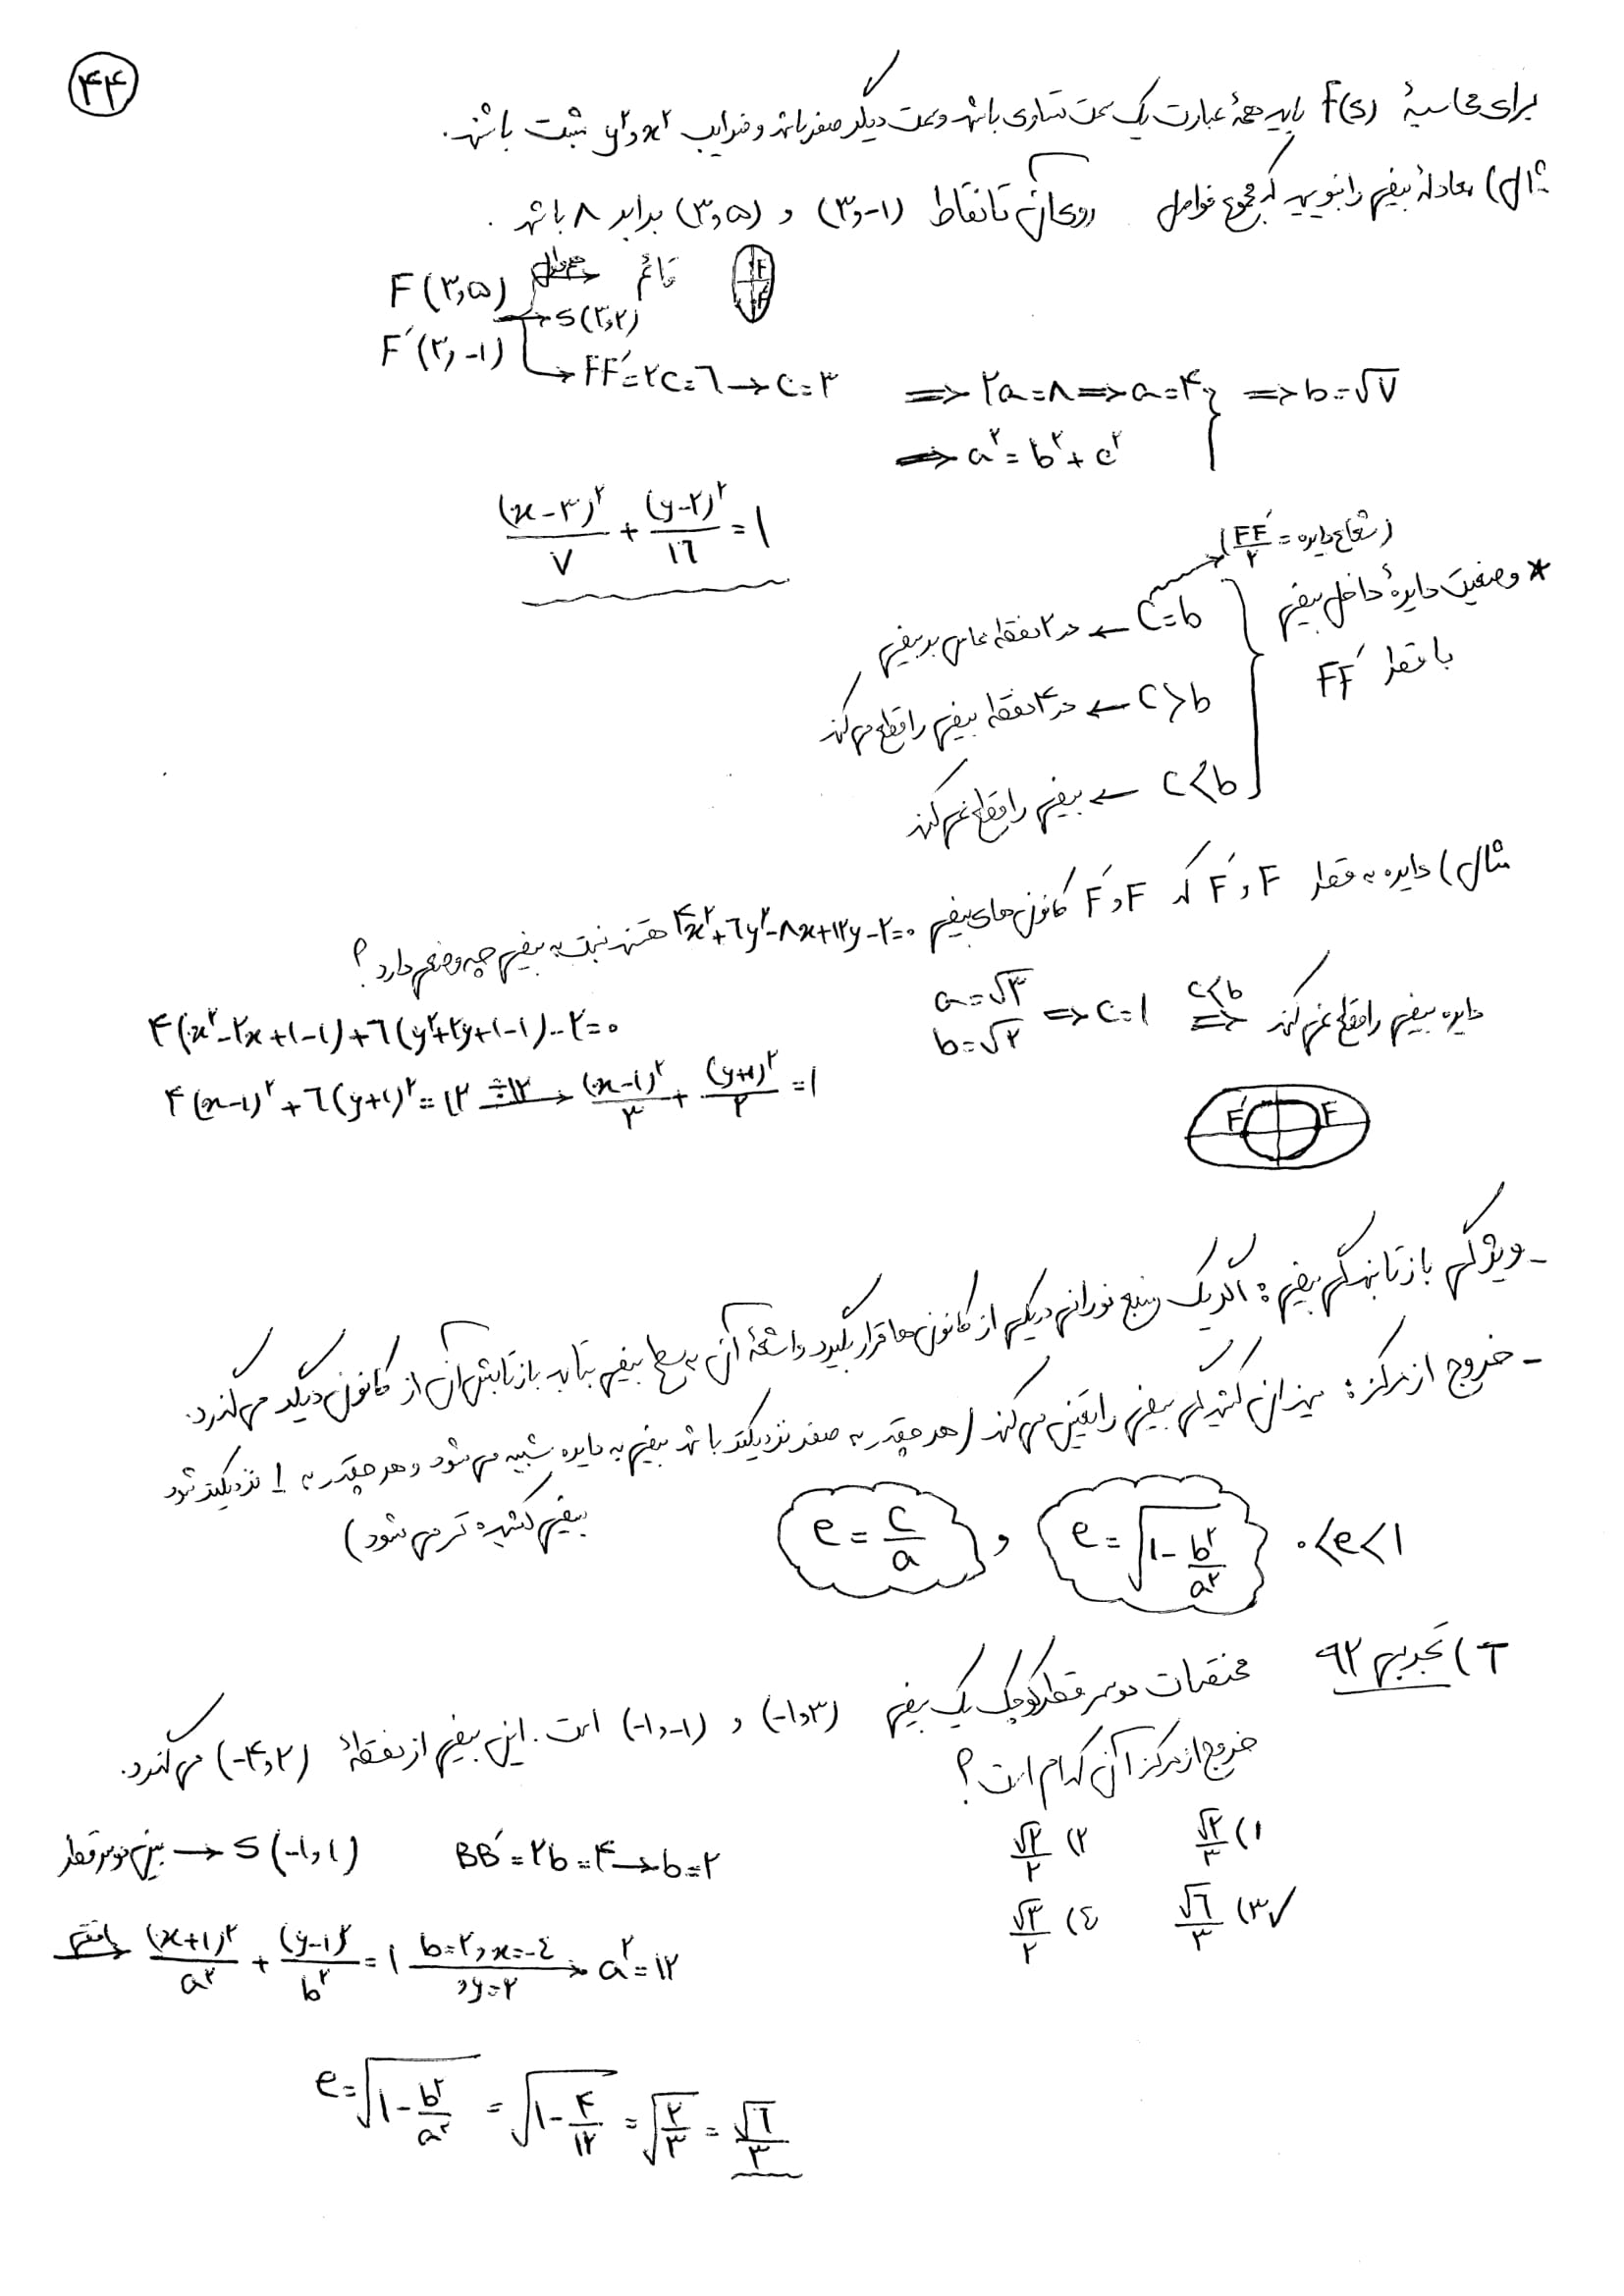 ۴۴
برای محاسبهٔ f(s) باید همهٔ عبارت یک سمت تساوی باشد و سمت دیگر صفر باشد و ضرایب x² و y² مثبت باشند.
مثال) معادلهٔ بیضی را بنویسید که مجموع فواصل روی آن تا نقاط (۳و-۱) و (۳و۵) برابر ۸ باشد.
F(۳,۵) → قائم
F F'
→ S(۳,۲)
F'(۳,-۱)
→ FF' = ۲c = ۶ → c = ۳ ⇒ ۲a = ۸ ⇒ a = ۴ } ⇒ b = √۷
⇒ a² = b² + c²
(x-۳)²/۷ + (y-۲)²/۱۶ = ۱
(شعاع دایره = FF'/۲)
* وضعیت دایرهٔ داخل بیضی با قطر FF'
c = b ← در ۲ نقطه مماس بر بیضی
c > b ← در ۴ نقطه بیضی را قطع می‌کند
c < b ← بیضی را قطع نمی‌کند
مثال) دایره به قطر F و F' که F و F' کانون‌های بیضی ۴x²+۶y²-۸x+۱۲y-۲=۰ هستند نسبت به بیضی چه وضعی دارد؟
۴(x²-۲x+۱-۱)+۶(y²+۲y+۱-۱)-۲=۰
۴(x-۱)²+۶(y+۱)²=۱۲ ÷۱۲→ (x-۱)²/۳ + (y+۱)²/۲ = ۱
a=√۳
b=√۲ ⇒ c=۱ c<b ⇒ دایره بیضی را قطع نمی‌کند
F' F
- ویژگی بازتابندگی بیضی: اگر یک منبع نورانی در یکی از کانون‌ها قرار بگیرد و اشعهٔ آن به سطح بیضی بتابد بازتابش آن از کانون دیگر می‌گذرد.
- خروج از مرکز: میزان کشیدگی بیضی را تعیین می‌کند (هر چقدر به صفر نزدیکتر باشد بیضی به دایره شبیه می‌شود و هر چقدر به ۱ نزدیکتر شود
بیضی کشیده تر می شود)
۰<e<۱ e=√(۱-b²/a²) و e=c/a
T) تجربی ۹۲ مختصات دو سر قطر کوچک یک بیضی (-۱و۳) و (-۱و-۱) است. این بیضی از نقطهٔ (-۴و۲) می‌گذرد.
خروج از مرکز آن کدام است؟
۱) √۲/۳ ۲) √۲/۲
✓۳) √۶/۳ ٤) √۳/۲
بین دو سر قطر → S(-۱و۱) BB'=۲b=۴→b=۲
افقی→ (x+۱)²/a² + (y-۱)²/b² = ۱ b=۲, x=-٤, y=۲→ a²=۱۲
e=√(۱-b²/a²) = √(۱-۴/۱۲) = √(۲/۳) = √۶/۳